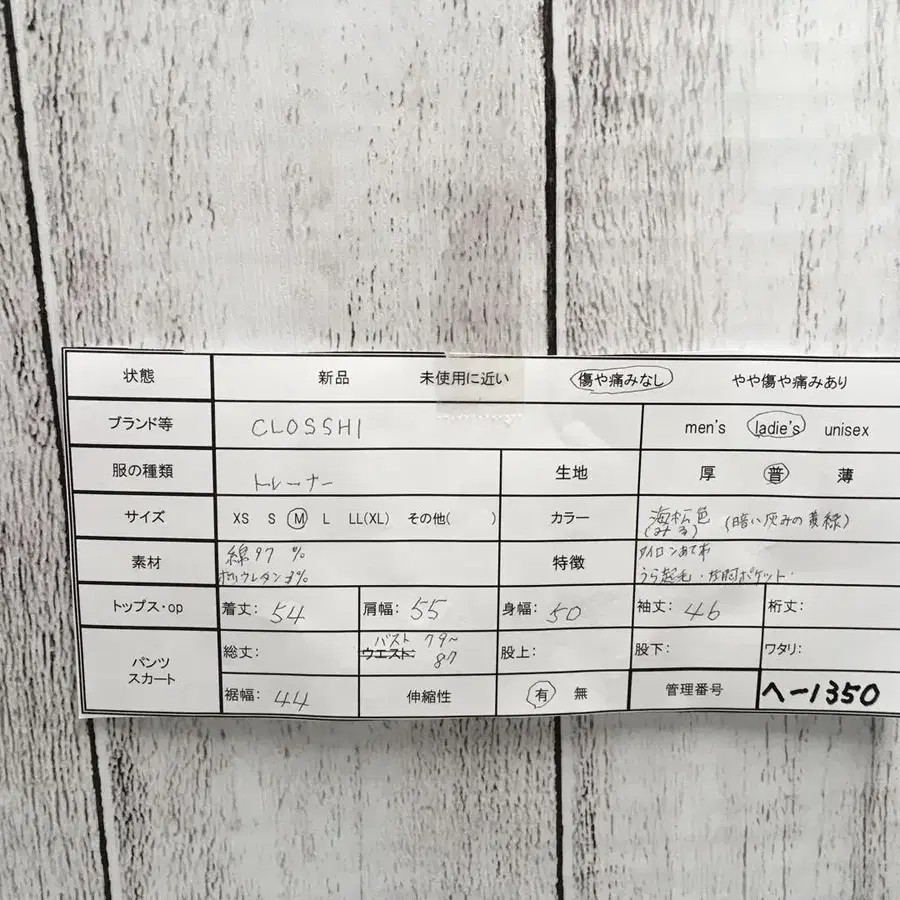 状態 新品 未使用に近い 傷や痛みなし やや傷や痛みあり
ブランド等 CLOSSHI men's ladie's unisex
服の種類 トレーナー 生地 厚 普 薄
サイズ XS S M L LL(XL) その他( ) カラー 海松色 (暗い灰みの黄緑)
(みる)
素材 綿97 % 特徴
ポリウレタン3% うら起毛・左胸ポケット・
トップス・op 着丈: 54 肩幅: 55 身幅: 50 袖丈: 46 裄丈:
パンツ スカート 総丈: バスト 79~87 ウエスト: 股上: 股下: ワタリ:
裾幅: 44 伸縮性 有 無 管理番号 へ-1350